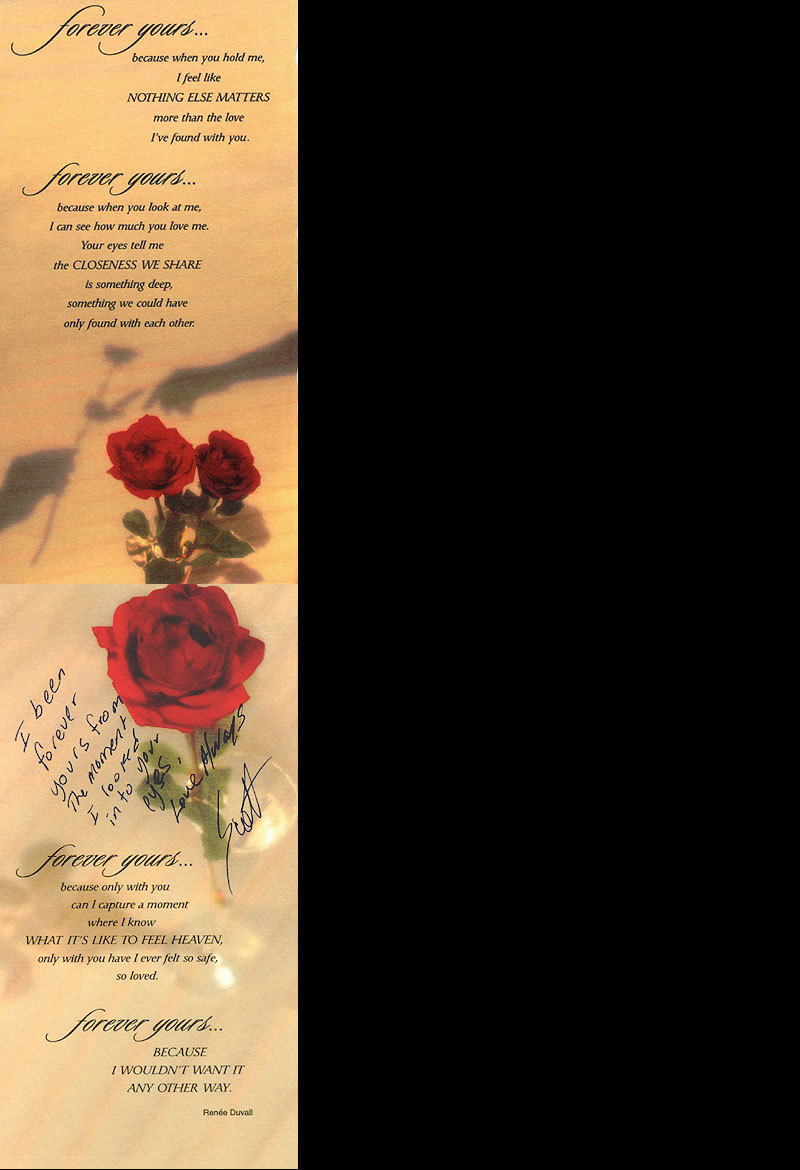 forever yours...
because when you hold me,
I feel like
NOTHING ELSE MATTERS
more than the love
I've found with you.
forever yours...
because when you look at me,
I can see how much you love me.
Your eyes tell me
the CLOSENESS WE SHARE
is something deep,
something we could have
only found with each other.
I been
forever
yours from
The moment
I looked
in to your
eyes,
Love Always
Scott
forever yours...
because only with you
can I capture a moment
where I know
WHAT IT'S LIKE TO FEEL HEAVEN,
only with you have I ever felt so safe,
so loved.
forever yours...
BECAUSE
I WOULDN'T WANT IT
ANY OTHER WAY.
Renée Duvall